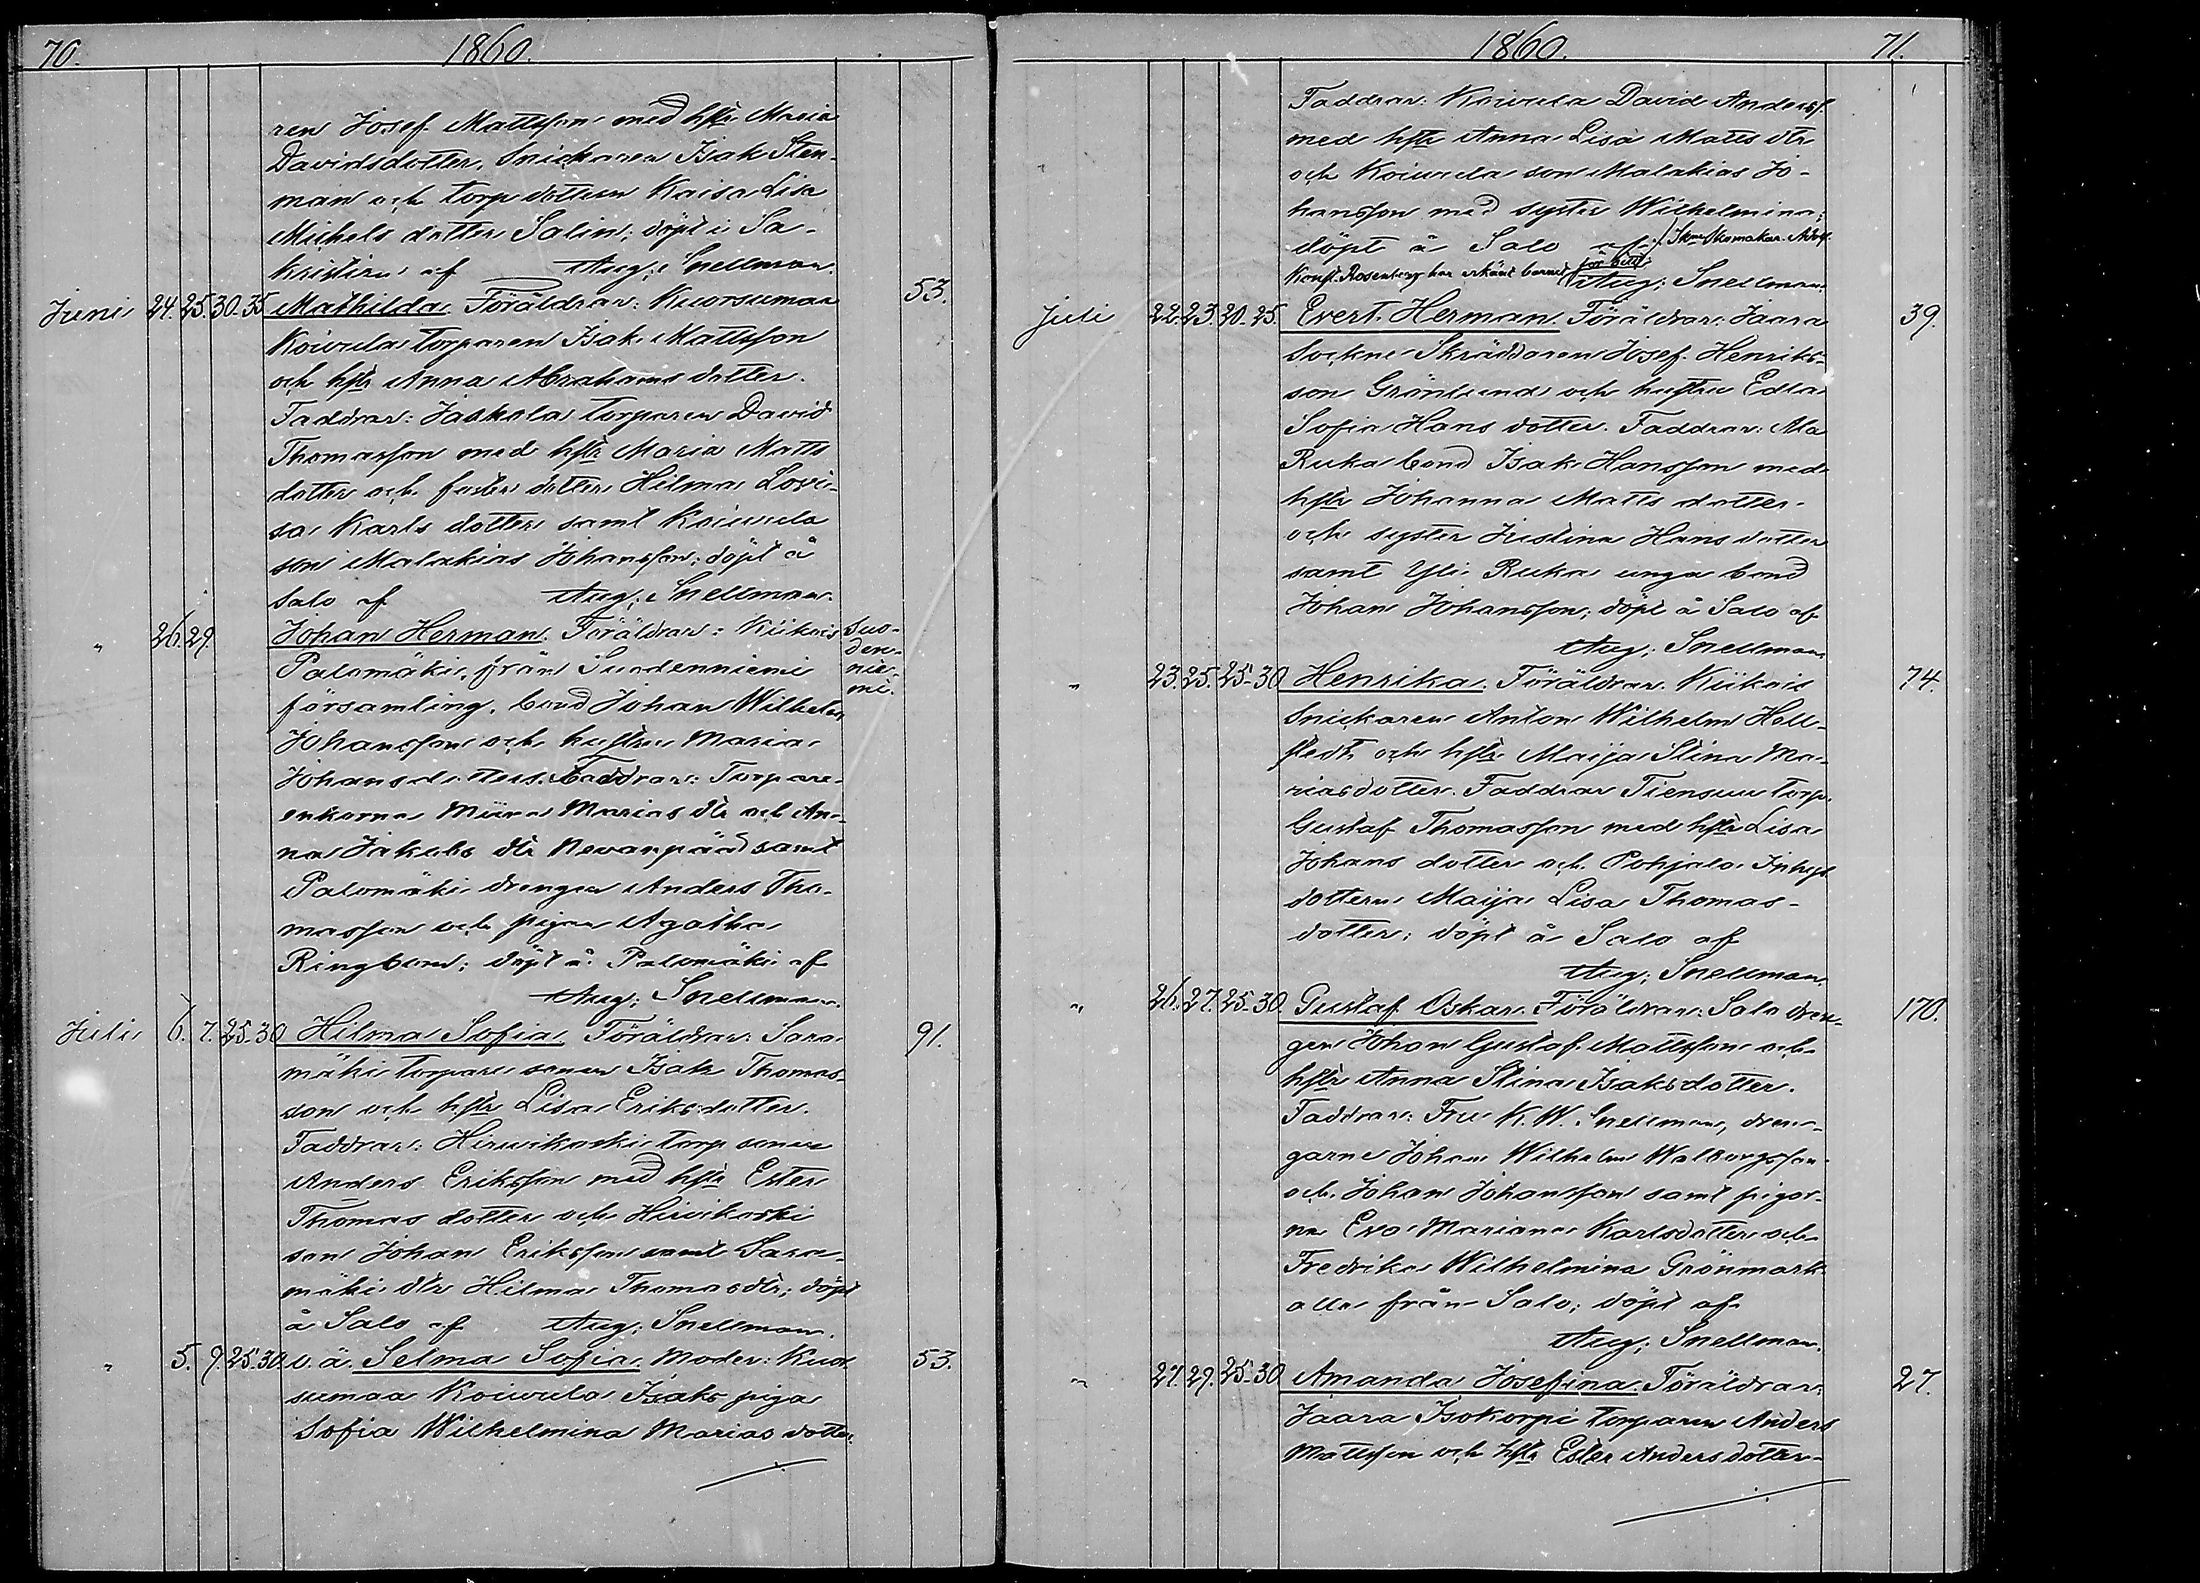 70. 1860.
ren Josef Mattsson med hstr Maria
Davidsdotter, Snickaren Isak Sten-
man och torpdottern Kaisa Lisa
Michelsdotter Salin; döpt i Sa-
kristian af Aug: Snellman.
Juni 24. 25. 30. 35 Mathilda. Föräldrar: Kuorsumaa 53.
Koivula torparen Isak Mattsson
och hstr Anna Abrahamsdotter.
Faddrar: Jaskola torparen David
Thomasson med hstr Maria Matts
dotter och foster dotter Hilma Lovi-
sa Karls dotter samt Koivula
son Malakias Johansson; döpt å
Salo af Aug: Snellman.
" 26. 29. Johan Herman. Föräldrar: Kiikois Suo-
den-
nie-
mi.
Palomäki, från Suodenniemi
församling, bond Johan Wilhelm
Johansson och hustru Maria
Johansdotter. Faddrar: Torpare
enkorna Miina Marias dtr och An-
na Jakobs dtr Nevanpää samt
Palomäki drengen Anders Tho-
masson och pigan Agatha
Ringbom; döpt å Palomäki af
Aug: Snellman.
Juli 6. 7. 25-30 Hilma Sofia. Föräldrar: Sara- 91.
mäki torpare sonen Isak Thomas-
son och hstr Lisa Eriksdotter.
Faddrar: Hirvikoski torp sonen
Anders Eriksson med hstr Ester
Thomas dotter och Hirvikoski
son Johan Eriksson samt Sara-
mäki dtr Hilma Thomasdtr; döpt
å Salo af Aug: Snellman.
" 5. 9. 25-30 o. ä. Selma Sofia. Moder: Kuor- 53.
sumaa Koivula Isaks piga
Sofia Wilhelmina Marias dotter.
1860. 71.
Faddrar: Koivula David Andersss.
med hstr Anna Lisa Matts dtr
och Koivula son Malakias Jo-
hansson med syster Wilhelmina;
döpt å Salo af Skomakar. Adolf
Konst. Rosenberg har erkänt barnet för sitt
Aug: Snellman.
Juli 22. 23. 20-25. Evert Herman. Föräldrar: Jaara 39.
Sockne Skräddaren Josef Henriks-
son Grönlund och hustru Edla
Sofia Hans dotter. Faddrar: Ala
Ruka bond Isak Hansson med
hstr Johanna Matts dotter
och syster Justina Hans dotter
samt Yli Ruka unga bond
Johan Johansson; döpt å Salo af
Aug: Snellman
" 23. 25. 25-30 Henrika. Föräldrar: Kiikois 74.
Snickaren Anton Wilhelm Hell-
stedt och hstr Maija Stina Ma-
riasdotter. Faddrar Tiensuu torp.
Gustaf Thomasson med hstr Lisa
Johans dotter och Pohjala Inhys
dottern Maija Lisa Thomas-
dotter; döpt å Salo af
Aug: Snellman.
" 26. 27. 25-30. Gustaf Oskar. Föräldrar: Salo dren- 170.
gen Johan Gustaf Mattsson och
hstr Anna Stina Isaksdotter.
Faddrar: Fru K. W. Snellman, dren-
garne Johan Wilhelm Walborgsson
och Johan Johansson samt pigor-
na Eva Mariana Karlsdotter och
Fredrika Wilhelmina Grönmark
alla från Salo; döpt af
Aug: Snellman.
" 27. 29. 25-30 Amanda Josefina. Föräldrar: 27.
Jaara Isokorpi torparen Anders
Mattsson och hstr Ester Anders dotter-